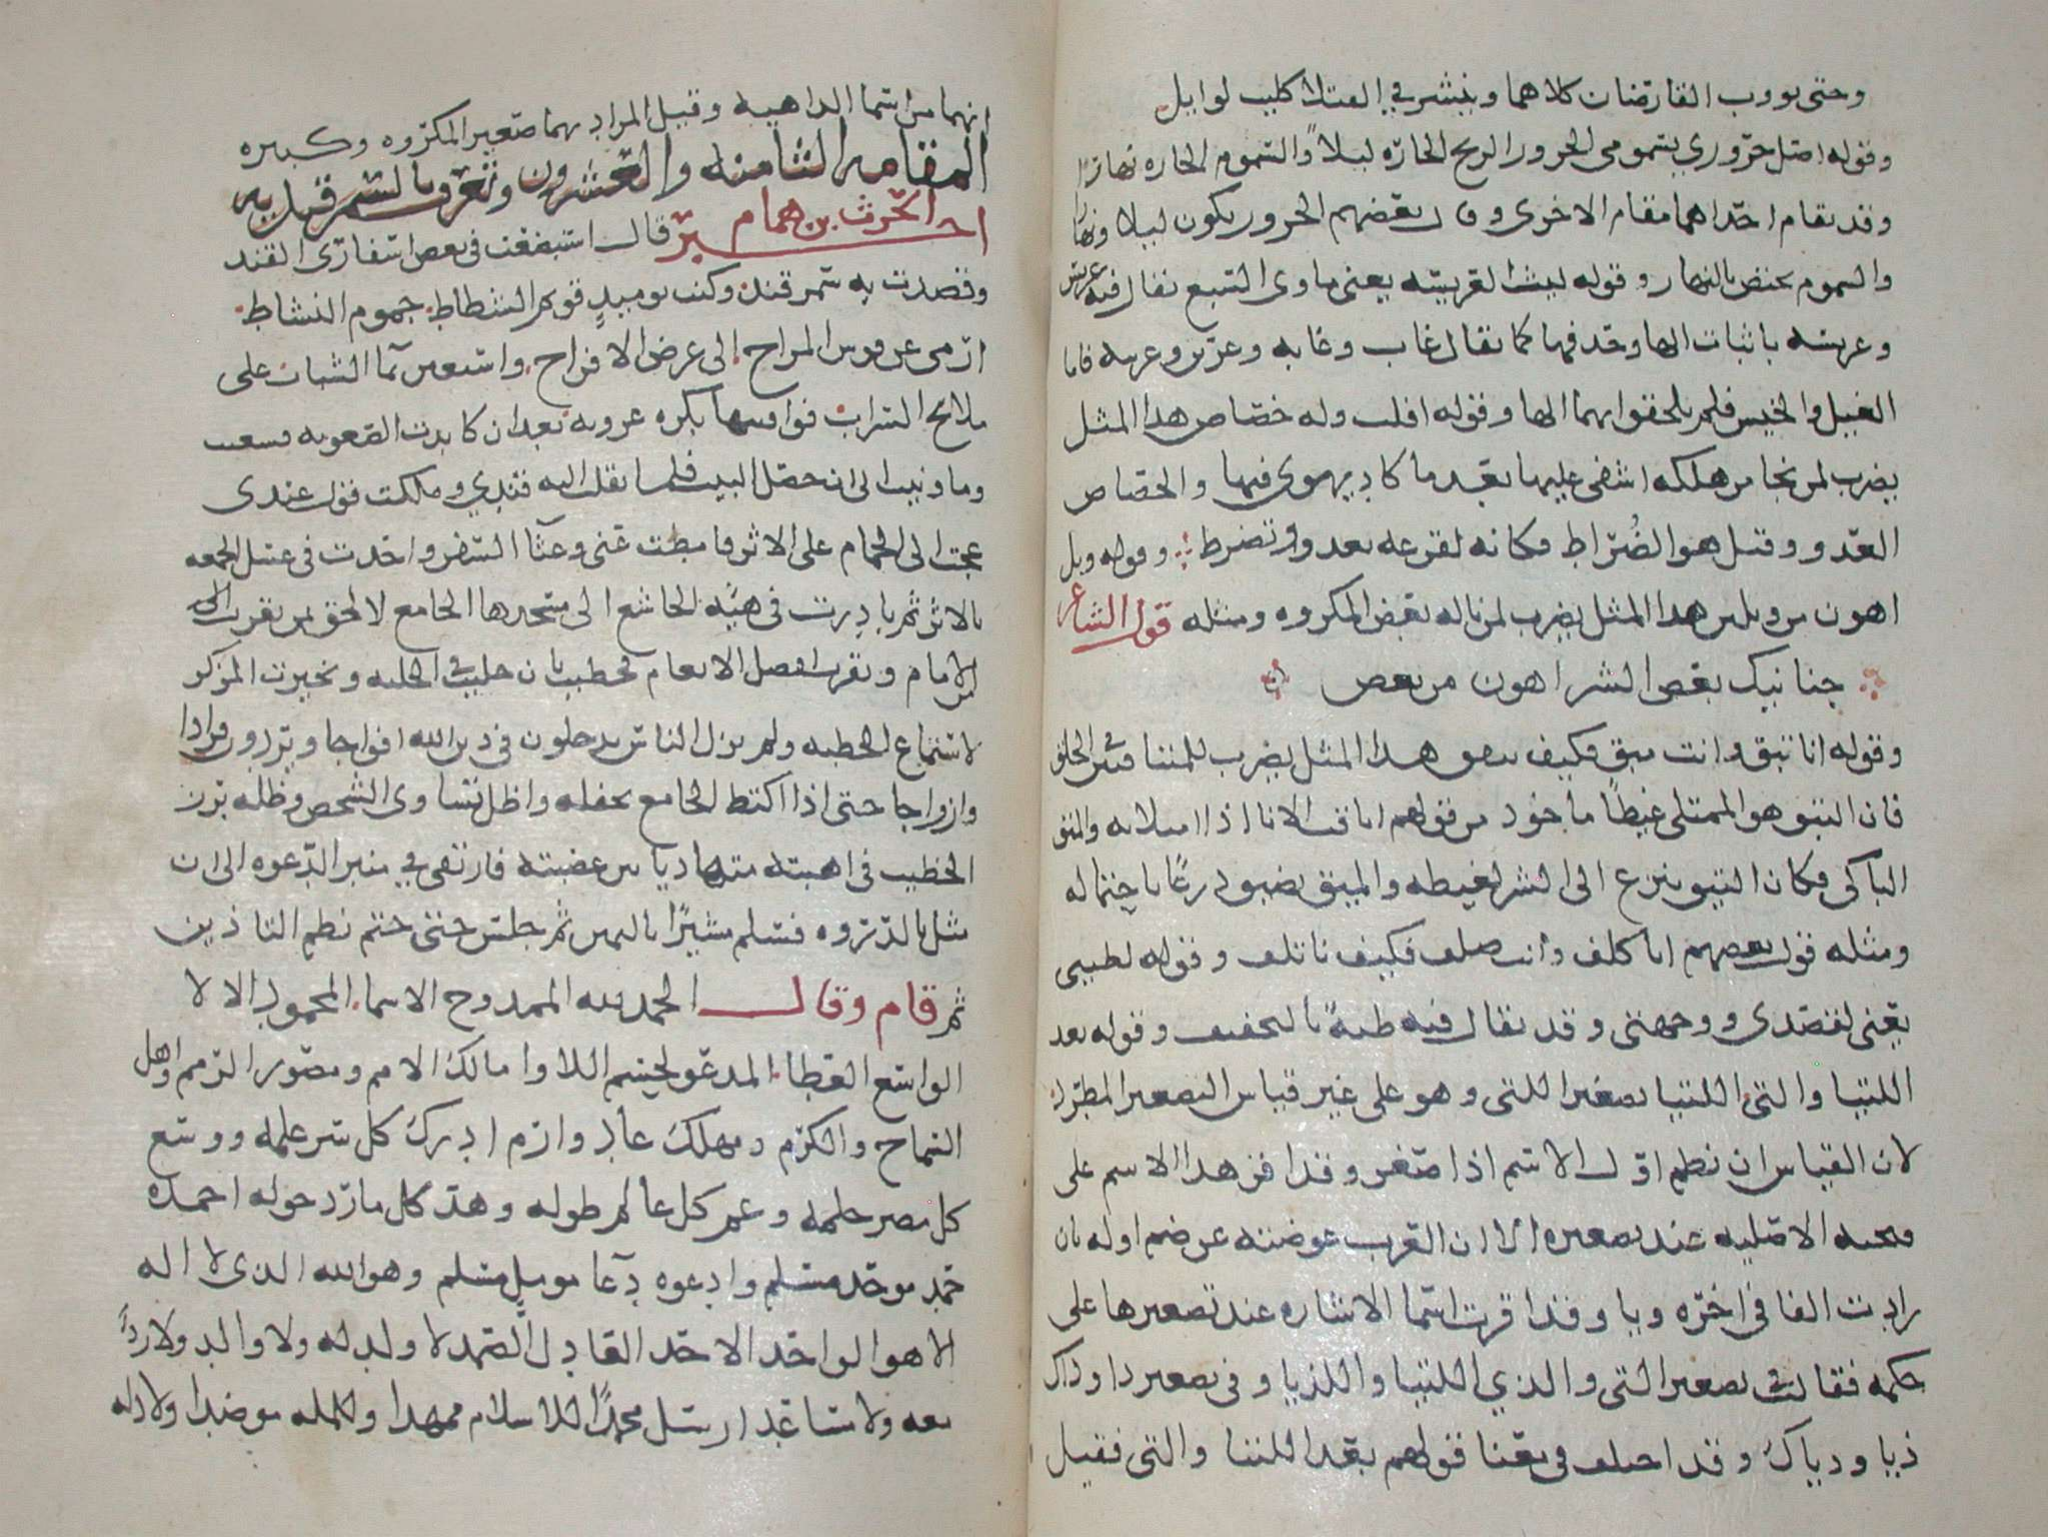 وحتى يووب القارضان كلاهما وينشر في القتلا كليب لوايل
وقوله اصل حروري بسمومي الحرور الريح الحارّه ليلاً والسموم الحاره نهارًا
وقد يقام احداهما مقام الاخرى وقال بعضهم الحرور يكون ليلا ونهارا
والسموم يختص بالنهار وقوله ليث العريسه يعني ماوى السبع يقال فيه عريس
وعريسه باثبات الها وحذفها كما يقال غاب وغابه وعرين وعرينه فاما
الغيل والخيس فلم يلحقوا بهما الها وقوله افلت وله حصاص هذا المثل
يضرب لمن نجا من هلكه اشفى عليها بعد ما كاد يهوي فيها والحصاص
العدو وقيل هو الضُراط فكانه لفزعه يعدو وتضرط وقوله ويل
اهون من ويلين هذا المثل يضرب لمن ناله بعض المكروه ومثله قول الشاعر
حنانيك بعض الشر اهون من بعض
وقوله انا تيق وانت ميق فكيف نتفق هذا المثل يضرب للمتنافيين في الخلق
فان التيق هو الممتلي غيظاً ماخوذ من قولهم اتاقت الانا اذا املاته والميق
الباكي فكان التيق ينزع الى الشر لغيظه والميق يضيق ذرعًا باحتماله
ومثله قول بعضهم انا كلف وانت صلف فكيف ناتلف وقوله لطيتي
يعني لقصدي ووجهتي وقد يقال فيه طيةً بالتخفيف وقوله بعد
اللتيا والتي اللتيا تصغير اللتي وهو على غير قياس التصغير المطرد
لان القياس ان يضم اول الاسم اذا صغر وقد اقر هذا الاسم على
فتحته الاصليه عند تصغيره الا ان العرب عوضته عن ضم اوله بان
زادت الفا في اخره ويا وقد اقرت اسما الاشاره عند تصغيرها على
حكمه فقالت في تصغير التي والذي اللتيا واللذيا وفي تصغير ذا وذاك
ذيا وذياك وقد اختلف في معنا قولهم بعد اللتيا والتي فقيل
انهما من اسما الداهيه وقيل المراد بهما صغير المكروه وكبيره
المقامه الثامنه والعشرون وتعرف بالسمرقنديه
اخبر الحرث بن همام قال استبضعت في بعض اسفاري القند
وقصدت به سمرقند وكنت يوميذٍ قويم الشطاط جموم النشاط
ارمي عن قوس المراح الى غرض الافراح واستعين بما الشباب على
ملامح السراب فوافيتها بكره عروبه بعد ان كابدت الصعوبه فسعيت
وما ونيت الى ان حصل البيت فلما نقلت اليه قندي وملكت قول عندي
عجت الى الحمام على الاثر فامطت عني وعثا السفر واخذت في غسل الجمعه
بالاثر ثم بادرت في هيه الخاشع الى مسجدها الجامع لالحق بمن يقرب الى
الامام ويقرب افضل الانعام فحظيت بان جليت في الحلبه وتخيرت المركز
لاستماع الخطبه ولم يزل الناس يدخلون في دين الله افواجا ويردون فرادا
وازواجا حتى اذا اكتظ الجامع بحفله واظل تساوى الشخص وظله برز
الخطيب في اهبته متهاديا من عصبته فارتقى في منبر الدعوه الى ان
مثل بالذروه فسلم مشيرًا باليمين ثم جلس حتى ختم نظم التاذين
ثم قام وقال الحمد لله الممدوح الاسما المحمود الالا
الواسع العطا المدعو لحسم اللاوا مالك الامم ومصور الرمم واهل
السماح والكرم ومهلك عاد وارم ادرك كل سر علمه ووسع
كل مصر حلمه وعم كل عالم طوله وهد كل مارد حوله احمده
حمد موحد مسلم وادعوه دعا مومل مسلم وهو الله الذي لا اله
الا هو الواحد الاحد العادل الصمد لا ولد له ولا والد ولا ردءً
معه ولا مساعد ارسل محمدًا للاسلام ممهدا وللمله موضدا ولادله